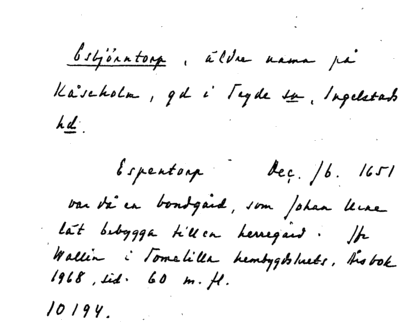 Esbjörntorp, äldre namn på
Kåseholm, gd i Tryde sn, Ingelstads
hd.
Espentorp Dec. Jb. 1651
var då en bondgård, som Johan
låt bebygga till en herregård. Jfr
Wallin i Tomelilla hembygdskrets, Årsbok
1968, sid. 60 m. fl.
10194.